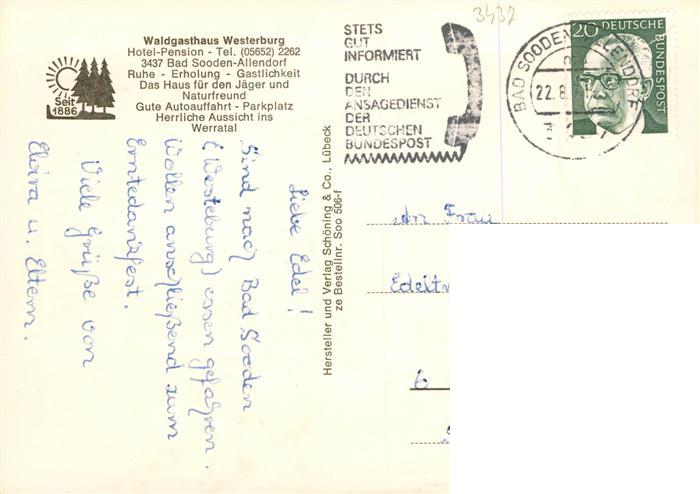 3437
Waldgasthaus Westerburg
Hotel-Pension - Tel. (05652) 2262
3437 Bad Sooden-Allendorf
Ruhe - Erholung - Gastlichkeit
Das Haus für den Jäger und
Naturfreund
Gute Autoauffahrt - Parkplatz
Herrliche Aussicht ins
Werratal
Seit
1886
STETS
GUT
INFORMIERT
DURCH
DEN
ANSAGEDIENST
DER
DEUTSCHEN
BUNDESPOST
BAD SOODEN-ALLENDORF
22.8
20 DEUTSCHE
BUNDESPOST
Liebe Edel!
Sind nach Bad Sooden
(Westeburg) essen gefahren.
Wollen anschließend zum
Erntedankfest.
Viele Grüße von
Elvira u. Eltern.
Hersteller und Verlag Schöning & Co., Lübeck
ze Bestellnr. Soo 506-f
An Frau
6